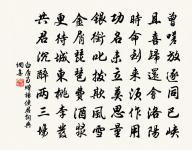 曾嗟放逐同巴峽
且喜歸還會洛陽
時命到來須作用
功名未立莫思量
銀銜叱撥欺風雪
金屑琵琶費酒漿
更待城東桃李發
共君沉醉兩三場
白居易贈楊使君詞典
網書